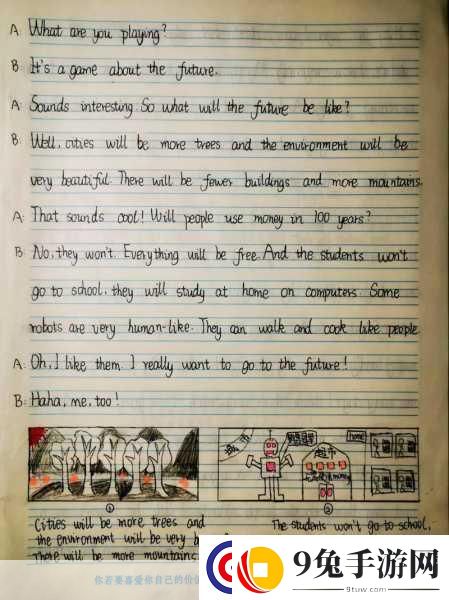 A: What are you playing?
B: It's a game about the future.
A: Sounds interesting. So what will the future be like?
B: Well, cities will be more trees and the environment will be
very beautiful. There will be fewer buildings and more mountains.
A: That sounds cool! Will people use money in 100 years?
B: No, they won't. Everything will be free. And the students won't
go to school, they will study at home on computers. Some
robots are very human-like. They can walk and cook like people
A: Oh, I like them. I really want to go to the future!
B: Haha, me, too!
城市
超市
home
① ②
Cities will be more trees and
the environment will be very
There will be more mountains
The students won't go to school,
你若要喜爱你自己的价值
9兔手游网
www.9tuw.com